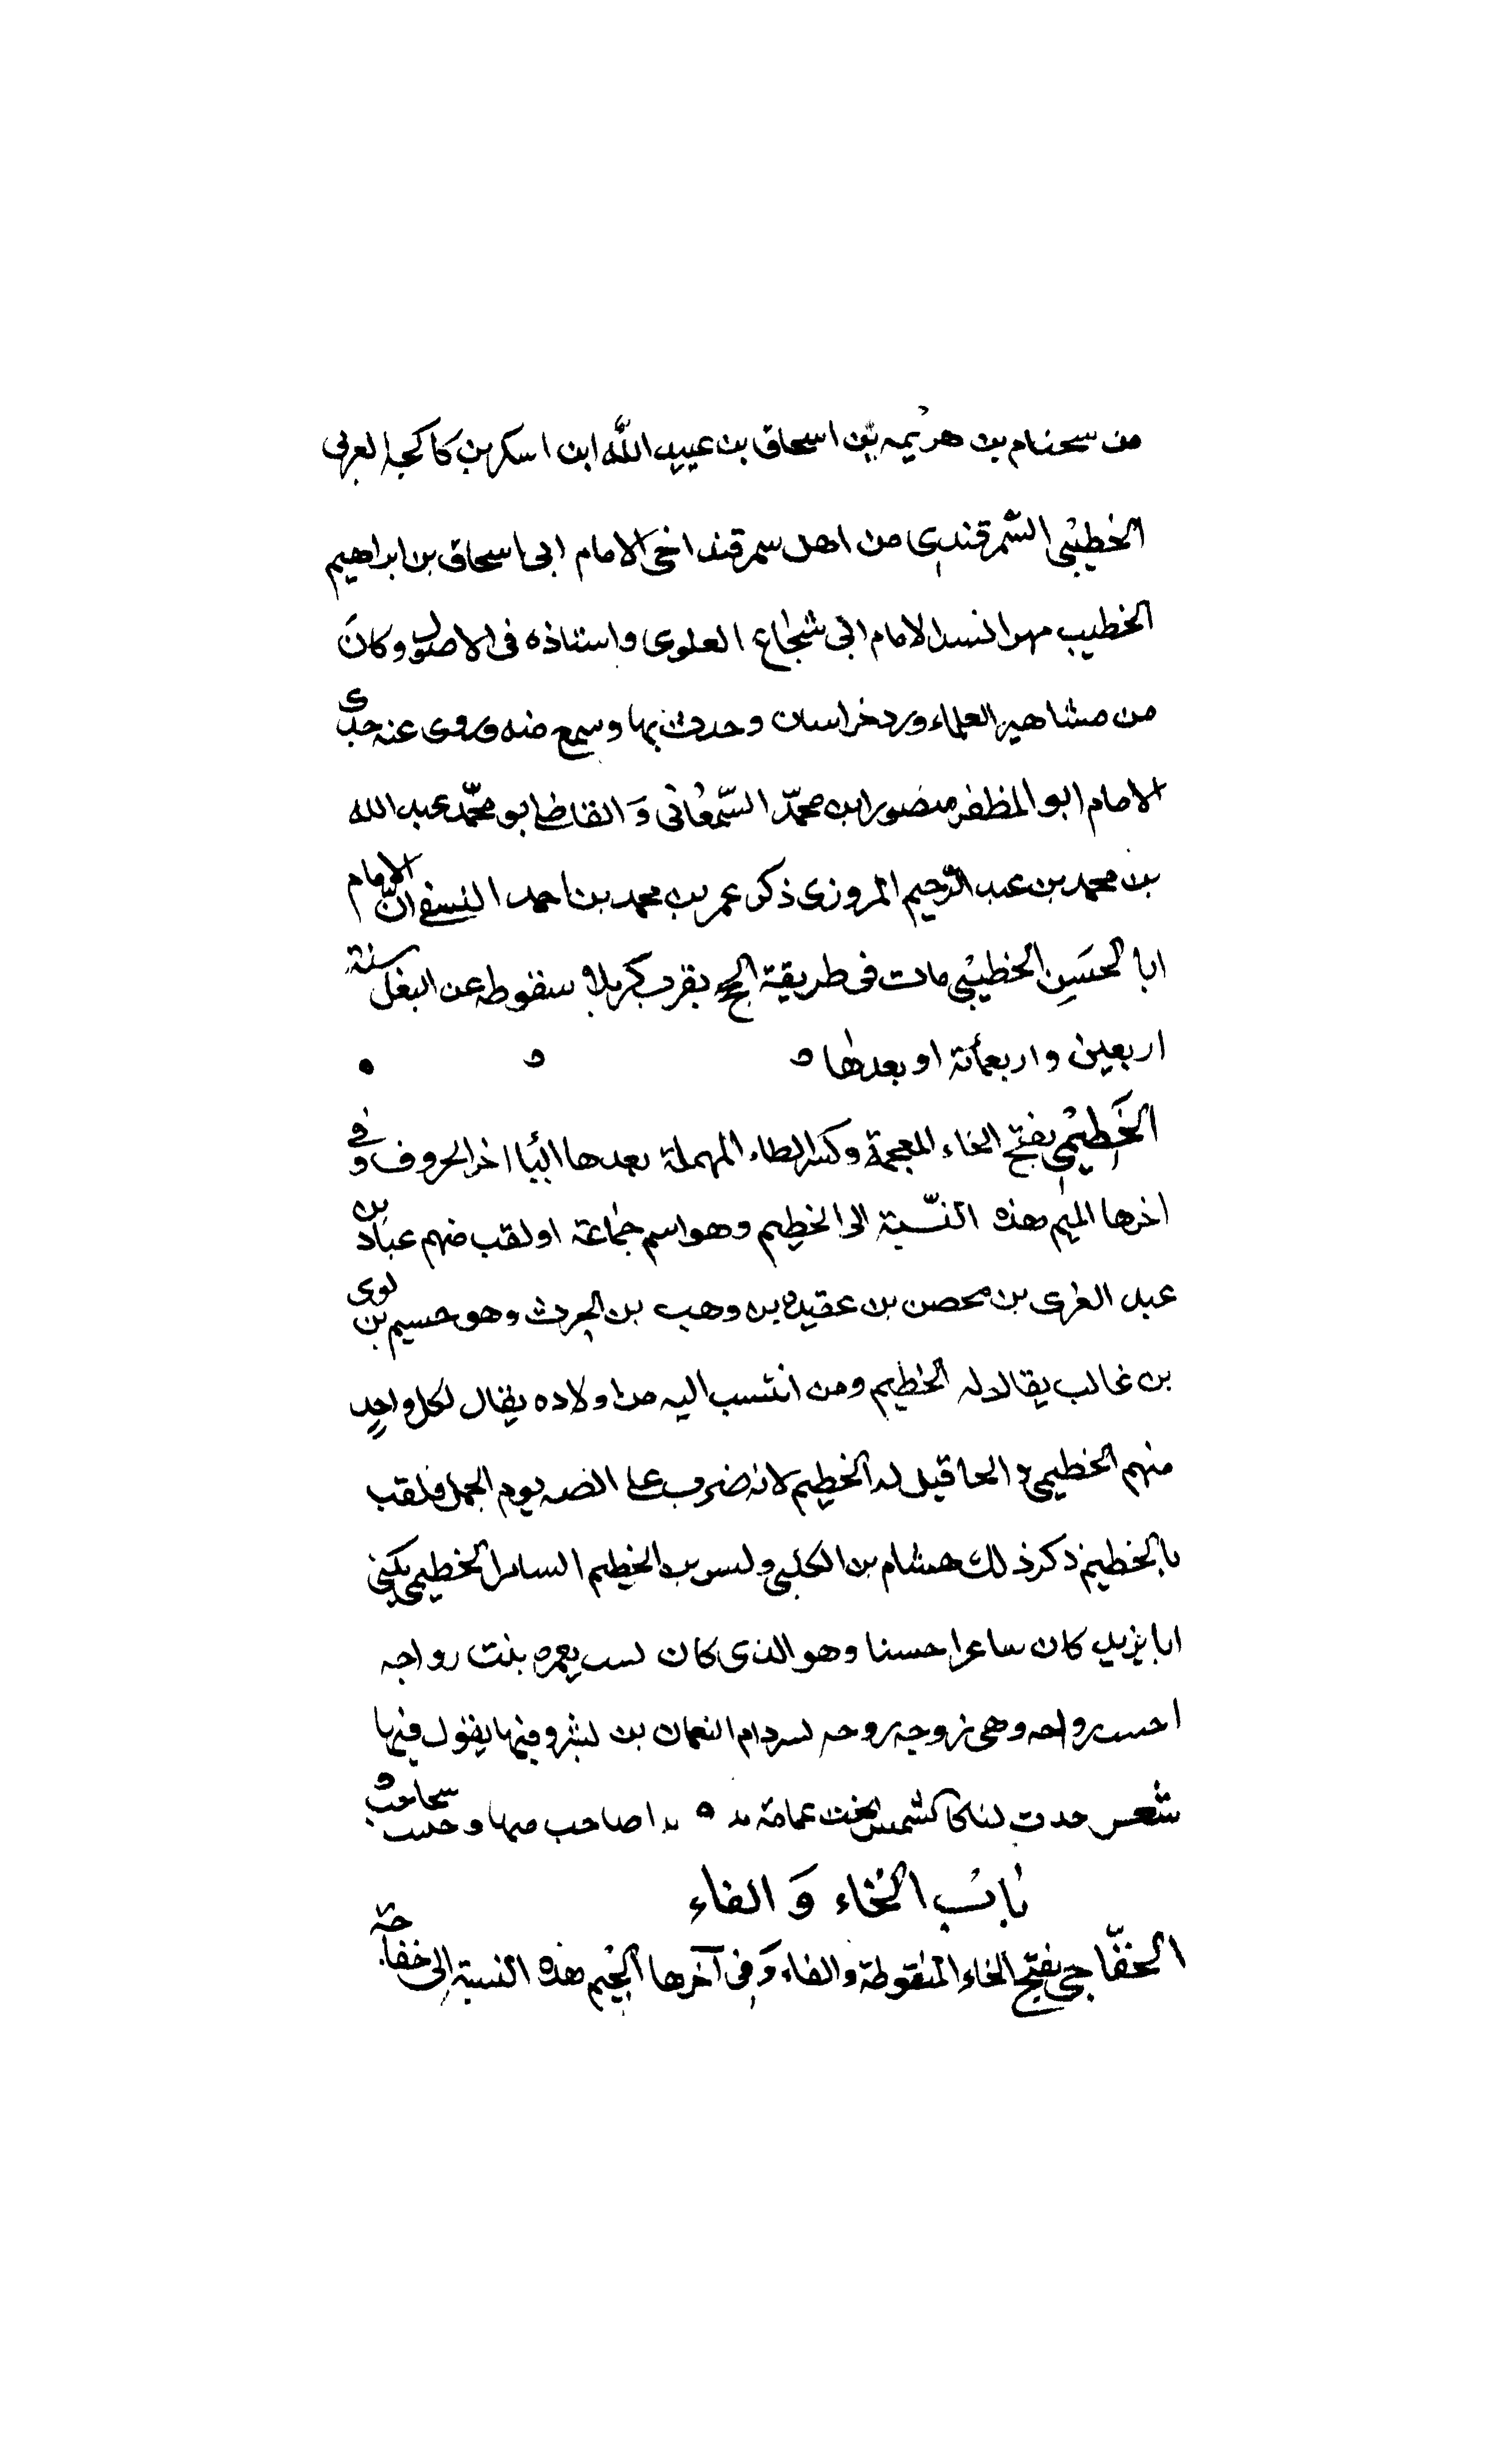 من سختام بن هرثمه بن اسحاق بن عبيد الله ابن اسكر بن كاكجه العربى
الخطيبى السمرقندى من اهل سمرقند اخى الامام ابى اسحاق بن ابراهيم
الخطيب الامام ابى شجاع العلوى واستاذه فى الاصول وكان
من مشاهير العلماء ورد خراسان وحدث بها وسمع منه وروى عنه جدى
الامام ابو المظفر منصور ابن محمد السّمعانى وَالقاضى ابو محمّد عبد الله
بن محمد بن عبد الرّحيم المروزى ذكر عمر بن محمد بن احمد النسفى انّ الامام
ابا الحسَنِ الخطيبى مات فى طريقة الحج بقرب كربلا سقوطه عن البغل سنة
اربعين واربعمائة او بعدها
الخَطِيْمِى بفتح الخاء المعجمة وكسر الطاء المهملة بعدها اليا اخر الحروف وفى
اخرها الميم هذه النّسبة الى الخطيم وهو اسم جماعة او لقب منهم عباد بن
عبد العزى بن محصن بن عقيدة بن وهب بن الحرث وهو حسيم بن لوى
بن غالب يقال له الخطيم ومن انتسب اليه من اولاده يقال لكل واحدٍ
منهم الخطيمى قيل له الخطيم لانه ضرب على انفه يوم الجمل فلقب
بالخطيم ذكر ذلك هشام بن الكلبى وليس بن الخطيم الساعر الخطيمى يكنى
ابا يزيد كان ساعرا حسنا وهو الذى كان بعمره بنت رواحه
احت رواحه وهى زوجه ام النعمان بن بشر وفيها يقول فيها
شعر لنا كالشمس تحت عمامة بدا حاجب منها وحاجب
بَابُ الخَاء وَ الفاء
الخفّاجى بفتح الخاء المنقوطة والفاء وَفى آخرها الجيم هذه النسبة الى خفاجة